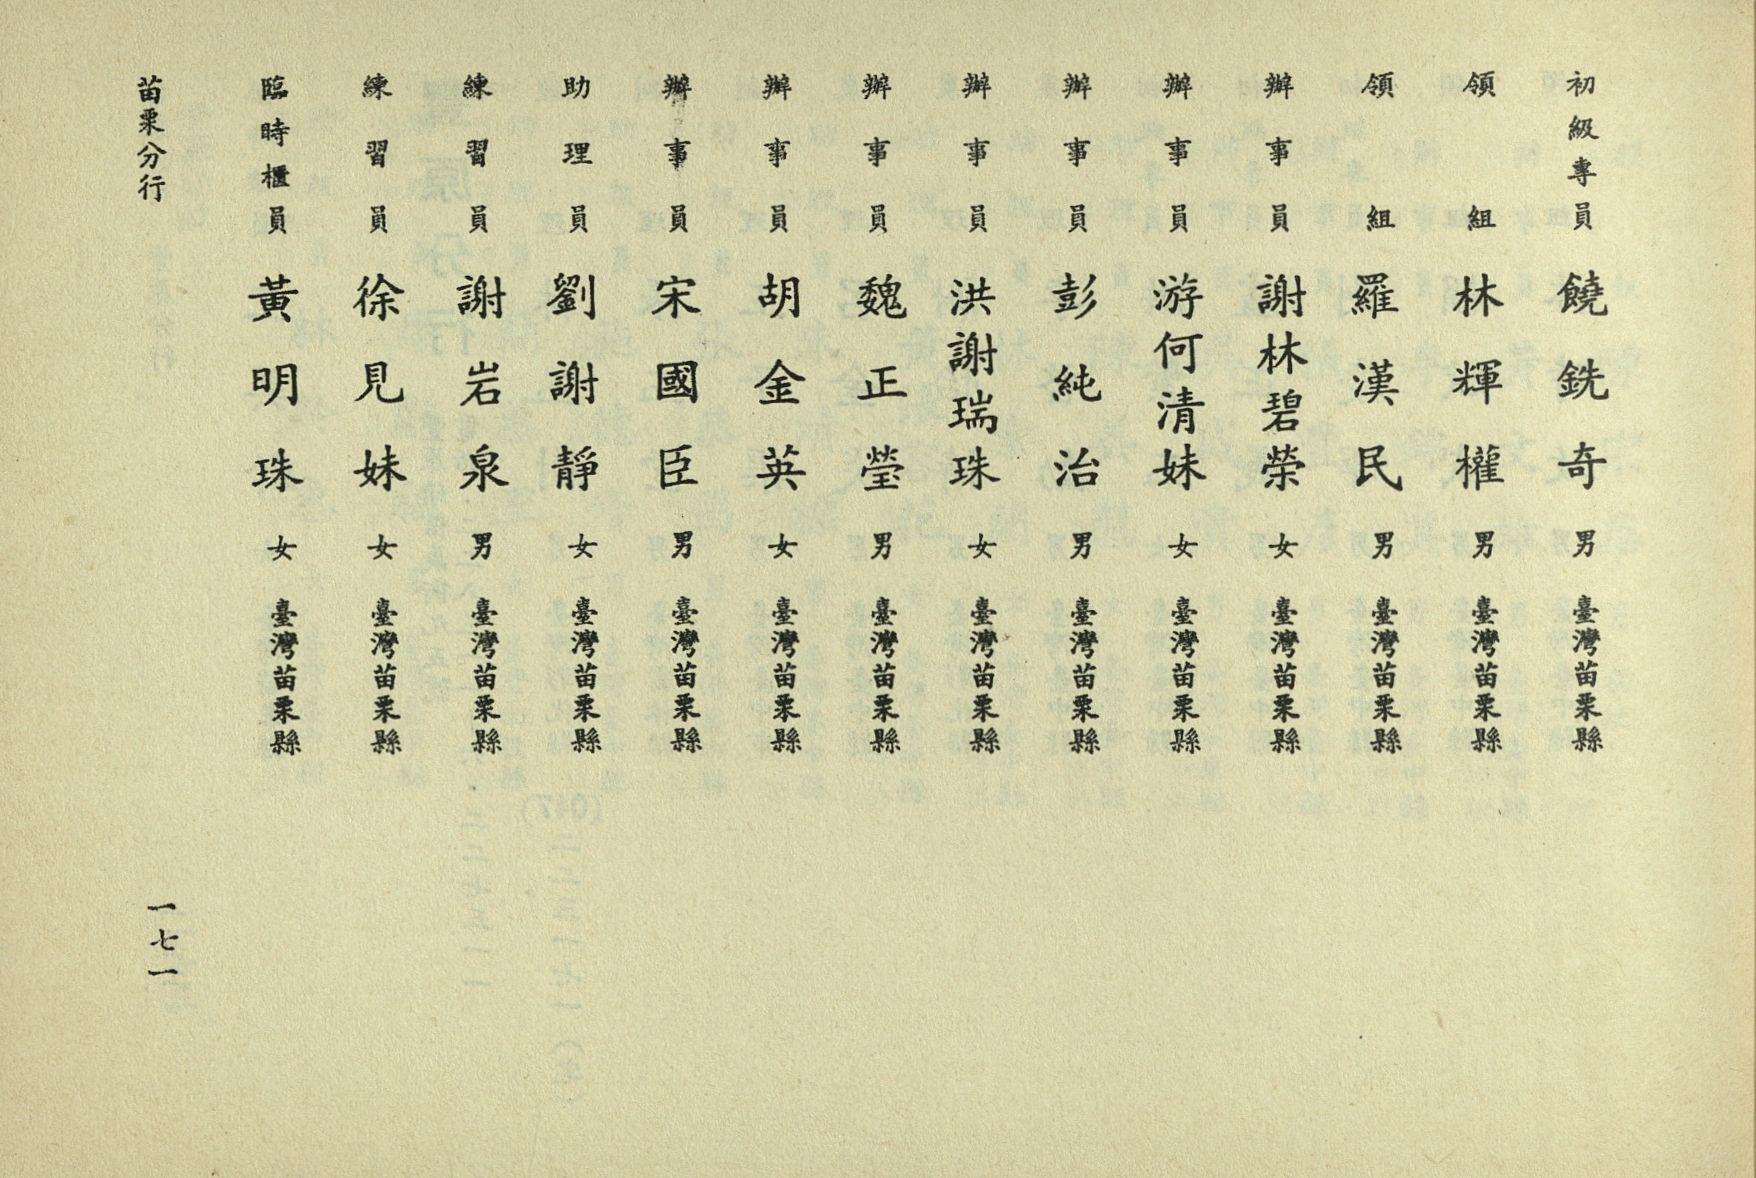 初級專員 饒銑奇 男 臺灣苗栗縣
領組 林輝權 男 臺灣苗栗縣
領組 羅漢民 男 臺灣苗栗縣
辦事員 謝林碧榮 女 臺灣苗栗縣
辦事員 游何清妹 女 臺灣苗栗縣
辦事員 彭純治 男 臺灣苗栗縣
辦事員 洪謝瑞珠 女 臺灣苗栗縣
辦事員 魏正瑩 男 臺灣苗栗縣
辦事員 胡金英 女 臺灣苗栗縣
辦事員 宋國臣 男 臺灣苗栗縣
助理員 劉謝靜 女 臺灣苗栗縣
練習員 謝岩泉 男 臺灣苗栗縣
練習員 徐見妹 女 臺灣苗栗縣
臨時櫃員 黃明珠 女 臺灣苗栗縣
苗栗分行 一七一